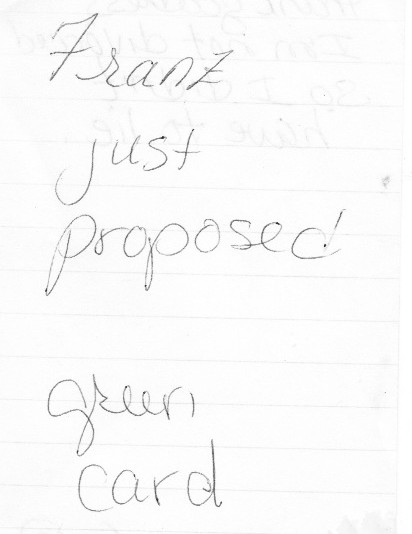 Franz
just
proposed
green
card